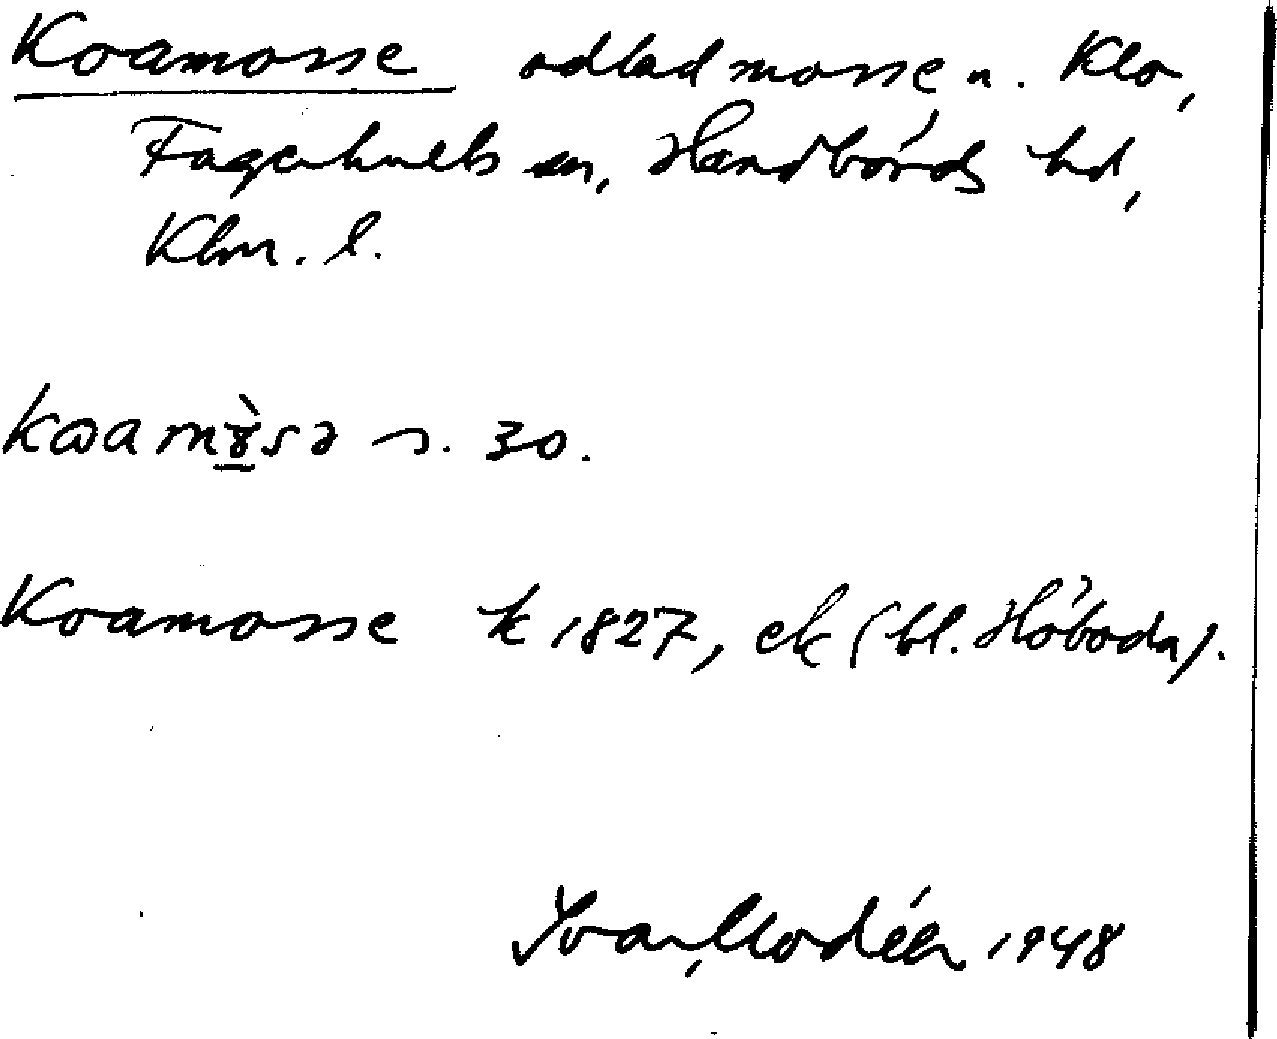 Koamosse odlad mosse n. Klo,
Fagerhults sn, Handbörds hd,
Klm. l.
Koamosse k 1827, ek (bl. Höboda).
Ivar Modéer 1948